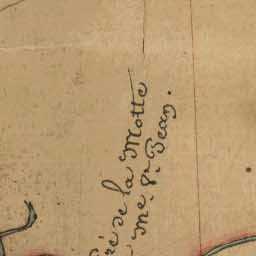 ré de la Motte
Me. Sr. Jean.